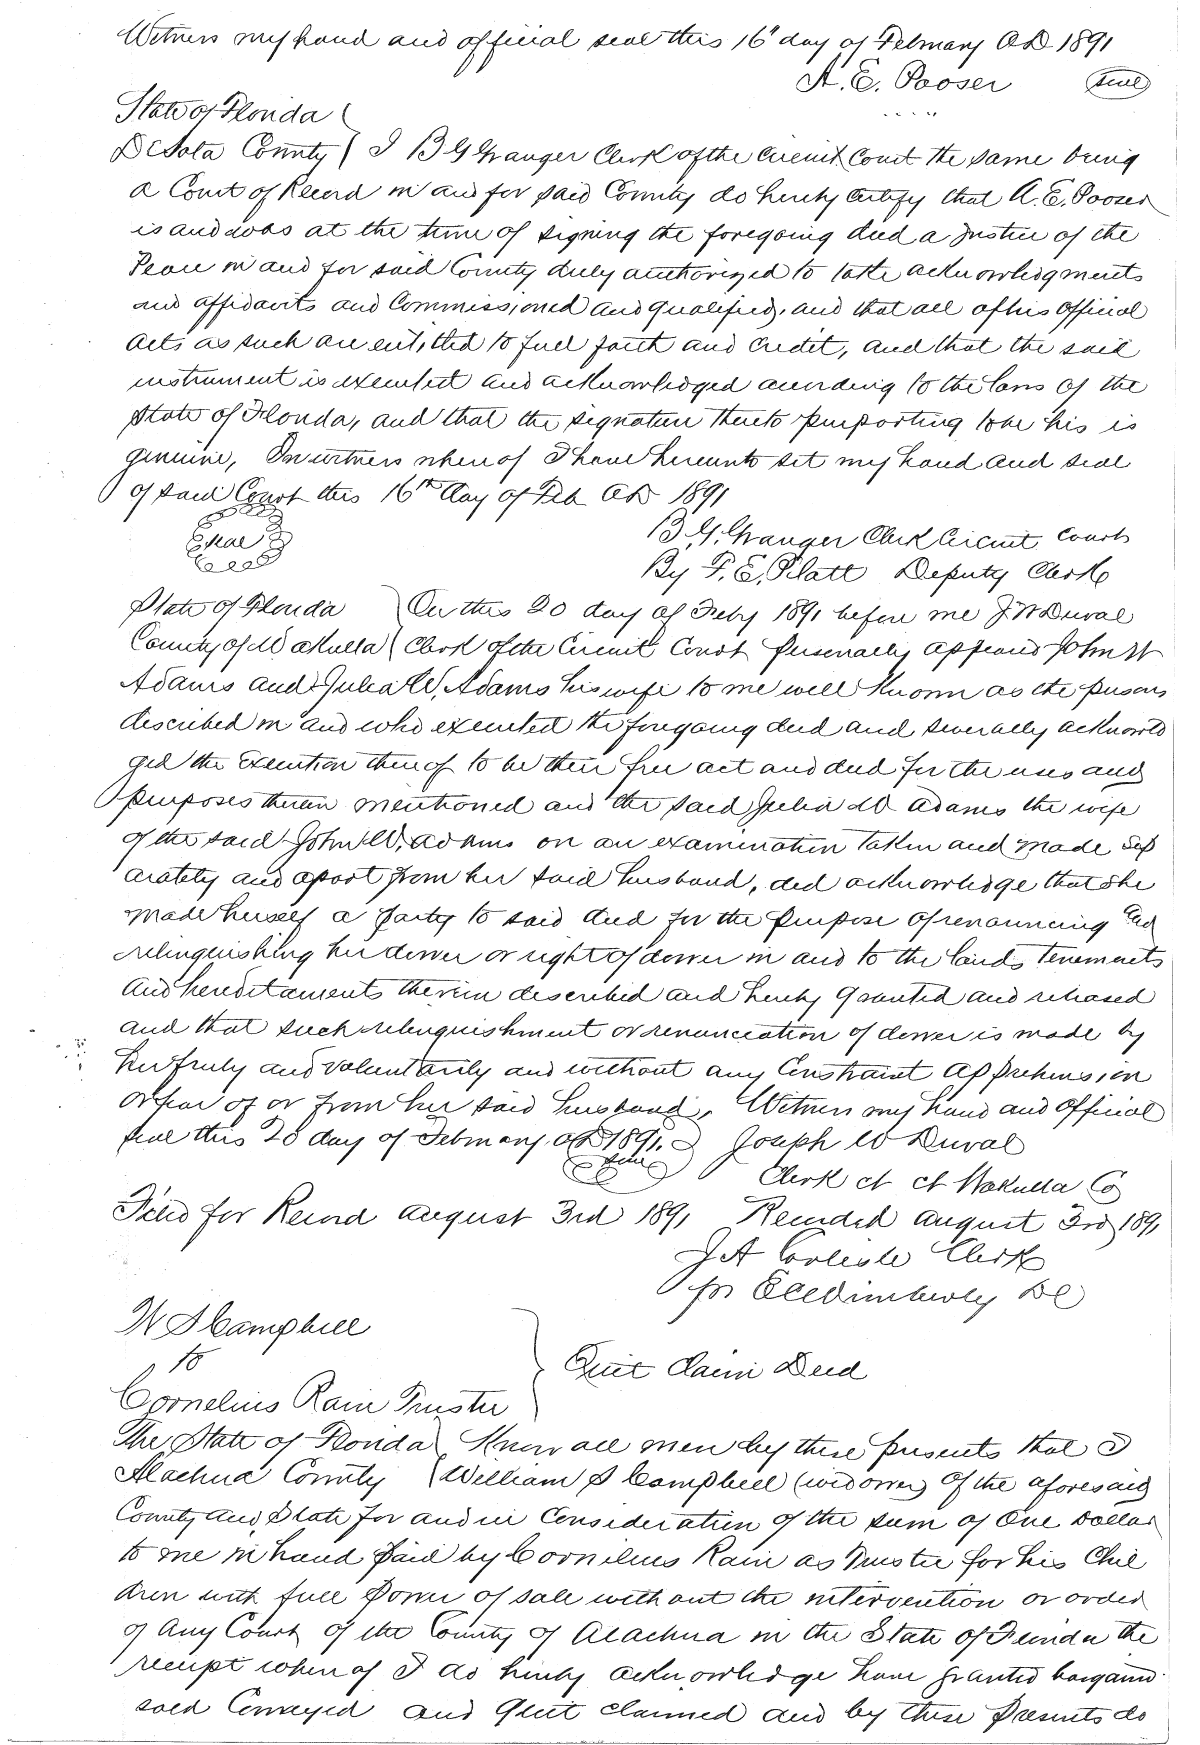 Witness my hand and official seal this 16 day of February A.D. 1891
A. E. Pooser (seal)
State of Florida
DeSota County I B G Granger Clerk of the Circuit Court the same being
a Court of Record in and for said County do hereby certify that A. E. Pooser
is and was at the time of signing the foregoing deed a Justice of the
Peace in and for said County duly authorized to take acknowledgments
and affidavits and Commissioned and qualified, and that all of his official
acts as such are entitled to full faith and credit, and that the said
instrument is executed and acknowledged according to the laws of the
State of Florida, and that the signature thereto purporting to be his is
genuine, In witness whereof I have hereunto set my hand and seal
of said Court this 16th day of Feb AD 1891
Seal
B. G. Granger Clerk Circuit Court
By F. E. Platt Deputy Clerk
State of Florida On this 20 day of Feby 1891 before me J. W Duval
County of Wakulla Clerk of the Circuit Court personally appeared John W
Adams and Julia W. Adams his wife to me well known as the persons
described in and who executed the foregoing deed and severally acknowled
ged the Execution thereof to be their free act and deed for the uses and
purposes therein mentioned and the said Julia W Adams the wife
of the said John W. Adams on an examination taken and made Sep
arately and apart from her said husband, did acknowledge that she
made herself a party to said deed for the purpose of renouncing and
relinquishing her dower or right of dower in and to the lands tenements
and hereditaments therein described and hereby granted and released
and that such relinquishment or renunciation of dower is made by
her freely and voluntarily and without any Constraint apprehension
or fear of or from her said husband, Witness my hand and Official
seal this 20 day of February AD 1891. Joseph W Duval
seal
Clerk ct ct Wakulla Co
Filed for Record August 3rd 1891 Recorded August 3rd 1891
J A Carlisle Clerk
pr Wimberly DC
W S Campbell
to
Quit Claim Deed
Cornelius Rain Trustee
The State of Florida Know all men by these presents that I
Alachua County William S Campbell (widower) of the aforesaid
County and State for and in Consideration of the sum of One Dollar
to me in hand paid by Cornelius Rain as Trustee for his Chil
dren with full power of sale without the intervention or order
of Any Court of the County of Alachua in the State of Florida the
receipt whereof I do hereby acknowledge have granted bargained
sold Conveyed and Quit claimed and by these presents do